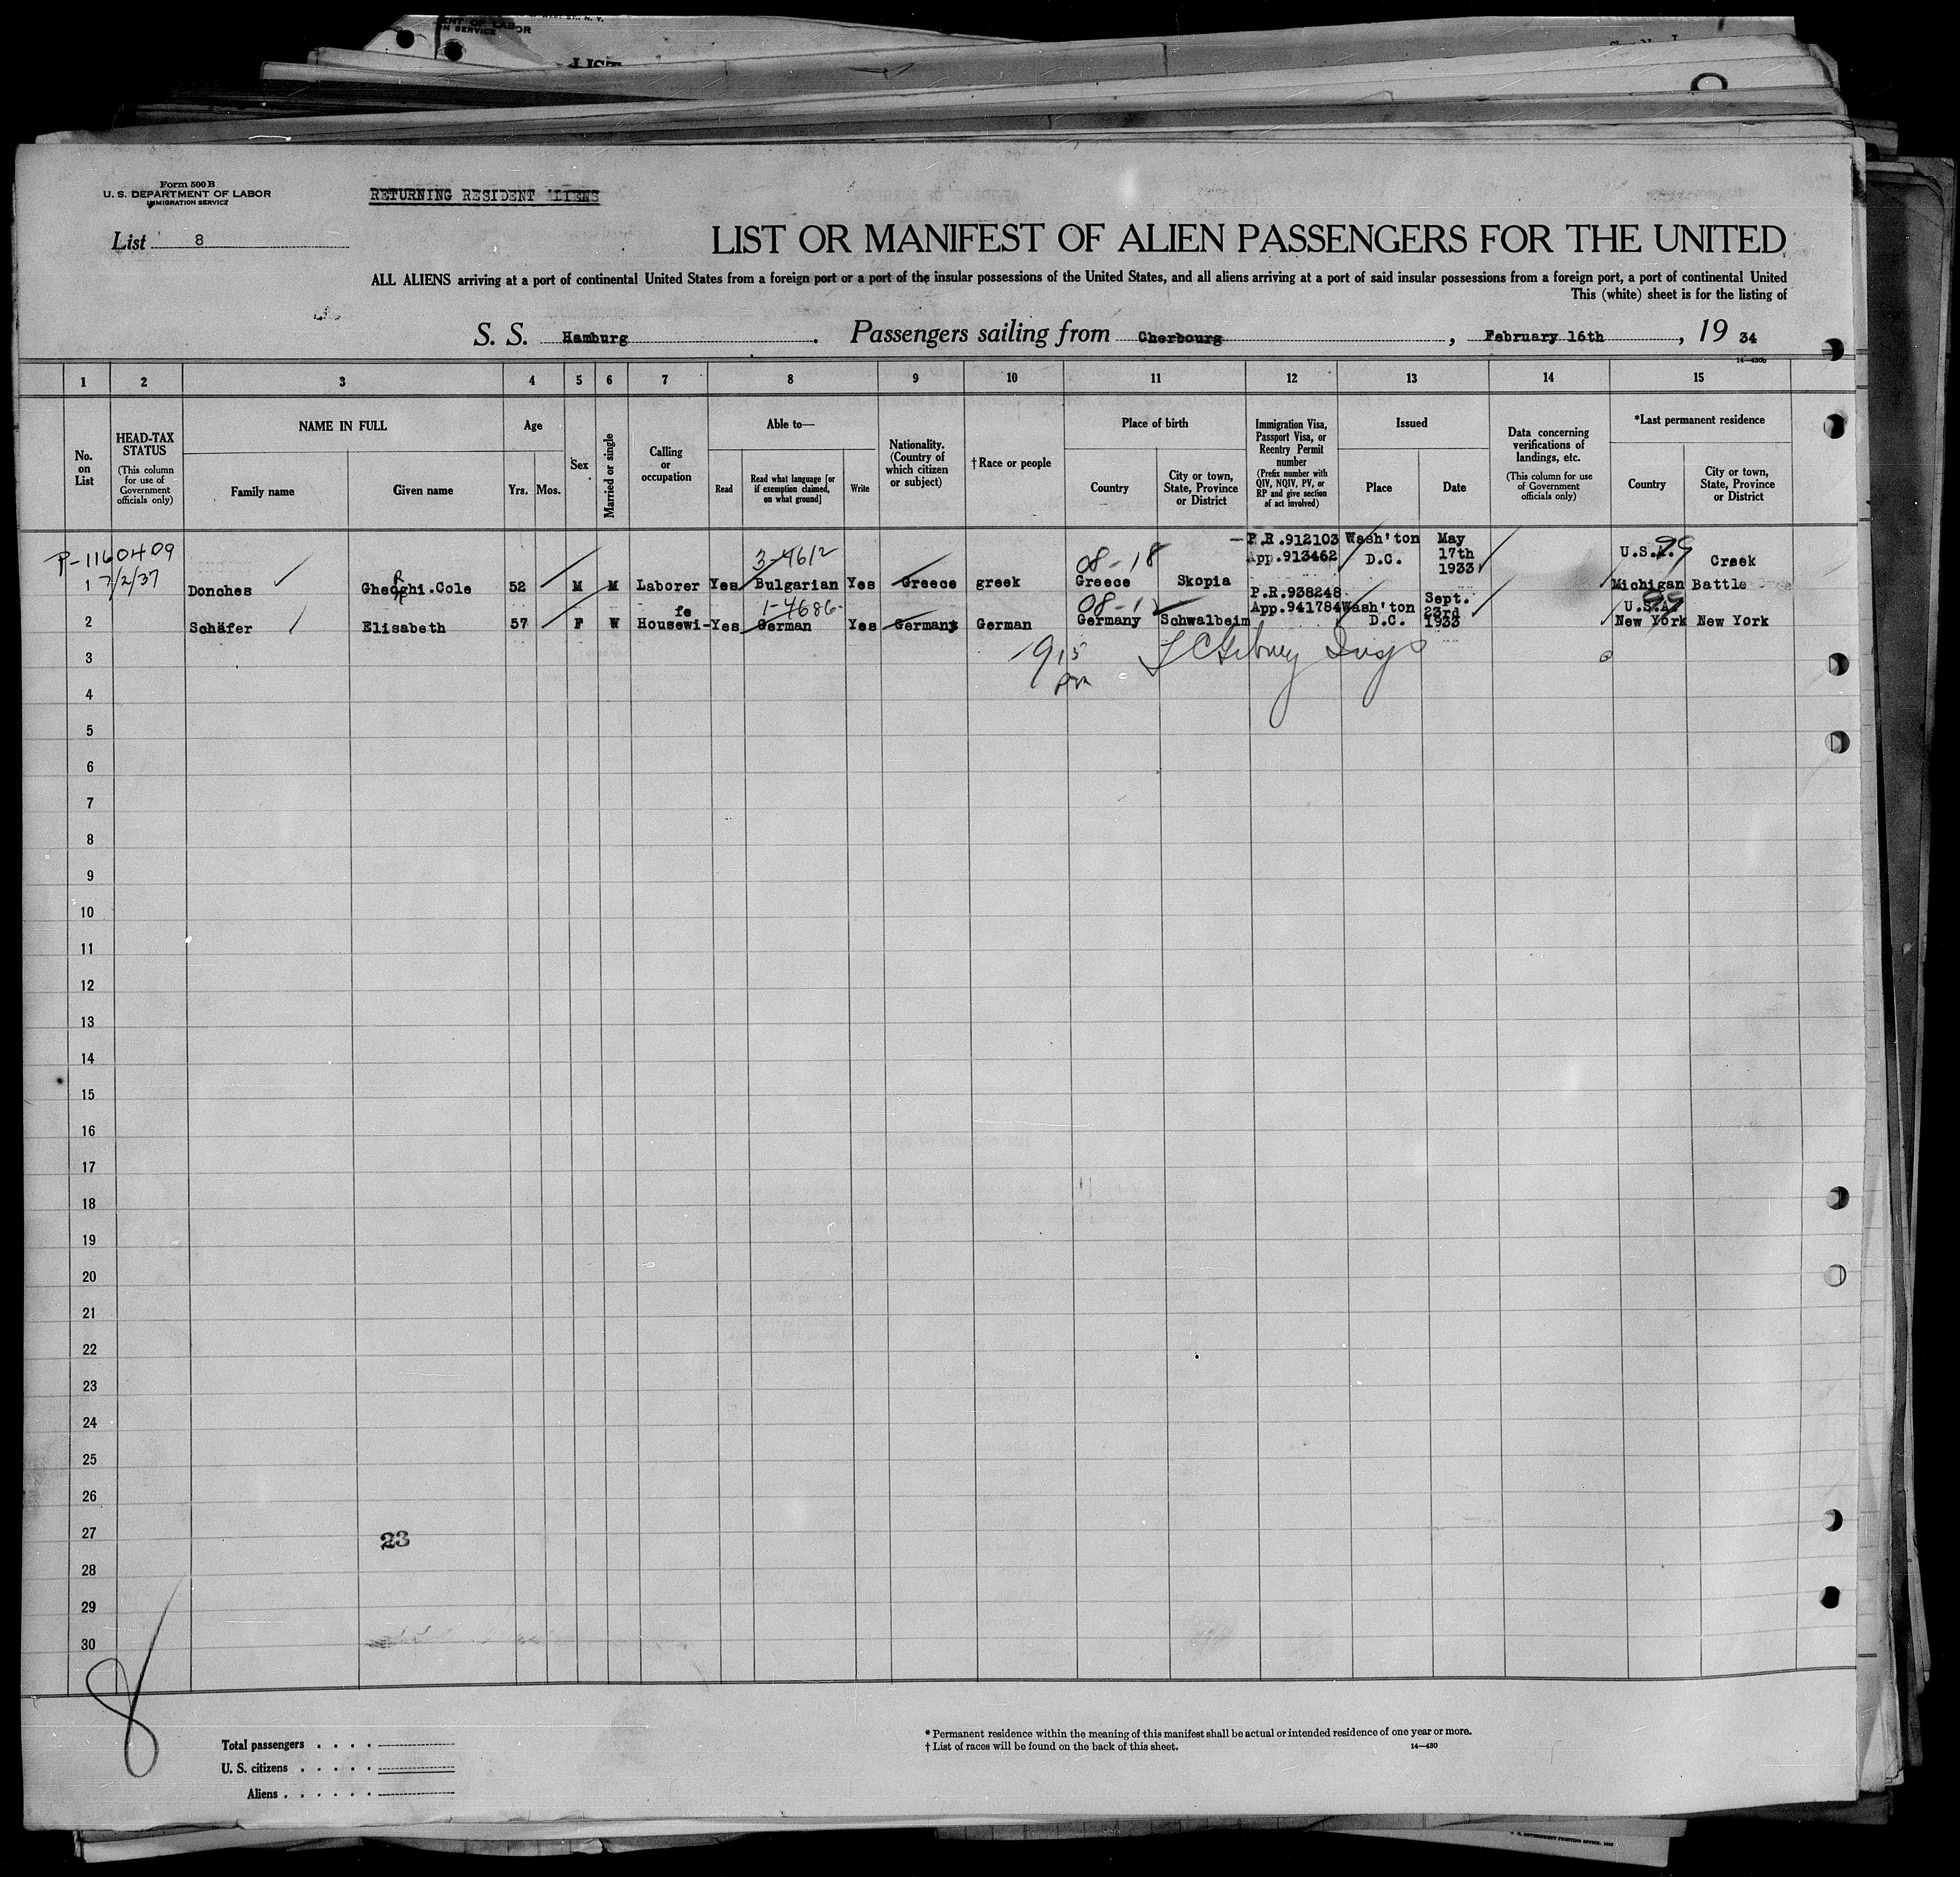 NT OF LABOR
N SERVICE
LIST
Form 500 B
U. S. DEPARTMENT OF LABOR
IMMIGRATION SERVICE
RETURNING RESIDENT ALIENS
List 8
LIST OR MANIFEST OF ALIEN PASSENGERS FOR THE UNITED
ALL ALIENS arriving at a port of continental United States from a foreign port or a port of the insular possessions of the United States, and all aliens arriving at a port of said insular possessions from a foreign port, a port of continental United
This (white) sheet is for the listing of
S. S. Hamburg . Passengers sailing from Cherbourg , February 16th , 19 34
14—430b
1 2 3 4 5 6 7 8 9 10 11 12 13 14 15
No. on List
HEAD-TAX STATUS (This column for use of Government officials only)
NAME IN FULL
Family name Given name
Age
Yrs. Mos.
Sex
Married or single
Calling or occupation
Able to—
Read
Read what language [or if exemption claimed, on what ground]
Write
Nationality. (Country of which citizen or subject)
†Race or people
Place of birth
Country
City or town, State, Province or District
Immigration Visa, Passport Visa, or Reentry Permit number (Prefix number with QIV, NQIV, PV, or RP and give section of act involved)
Issued
Place Date
Data concerning verifications of landings, etc. (This column for use of Government officials only)
*Last permanent residence
Country
City or town, State, Province or District
P-1160409
7/2/37
3-4612
08-18
99
1 Donches Gheorghi.Cole 52 M M Laborer Yes Bulgarian Yes Greece greek Greece Skopia P.R.912103 App.913462 Wash'ton D.C. May 17th 1933 U.S.A. Michigan Battle Creek
1-4686-
08-1
99
2 Schäfer Elisabeth 57 F W Housewi-fe Yes German Yes Germany German Germany Schwalbeim P.R.938248 App.941784 Wash'ton D.C. Sept. 23rd 1933 U.S.A. New York New York
3
915
pm
Insp
4
5
6
7
8
9
10
11
12
13
14
15
16
17
18
19
20
21
22
23
24
25
26
27
23
28
29
30
8
Total passengers . . . .
U. S. citizens . . . . .
Aliens . . . . . .
* Permanent residence within the meaning of this manifest shall be actual or intended residence of one year or more.
† List of races will be found on the back of this sheet.
14—430